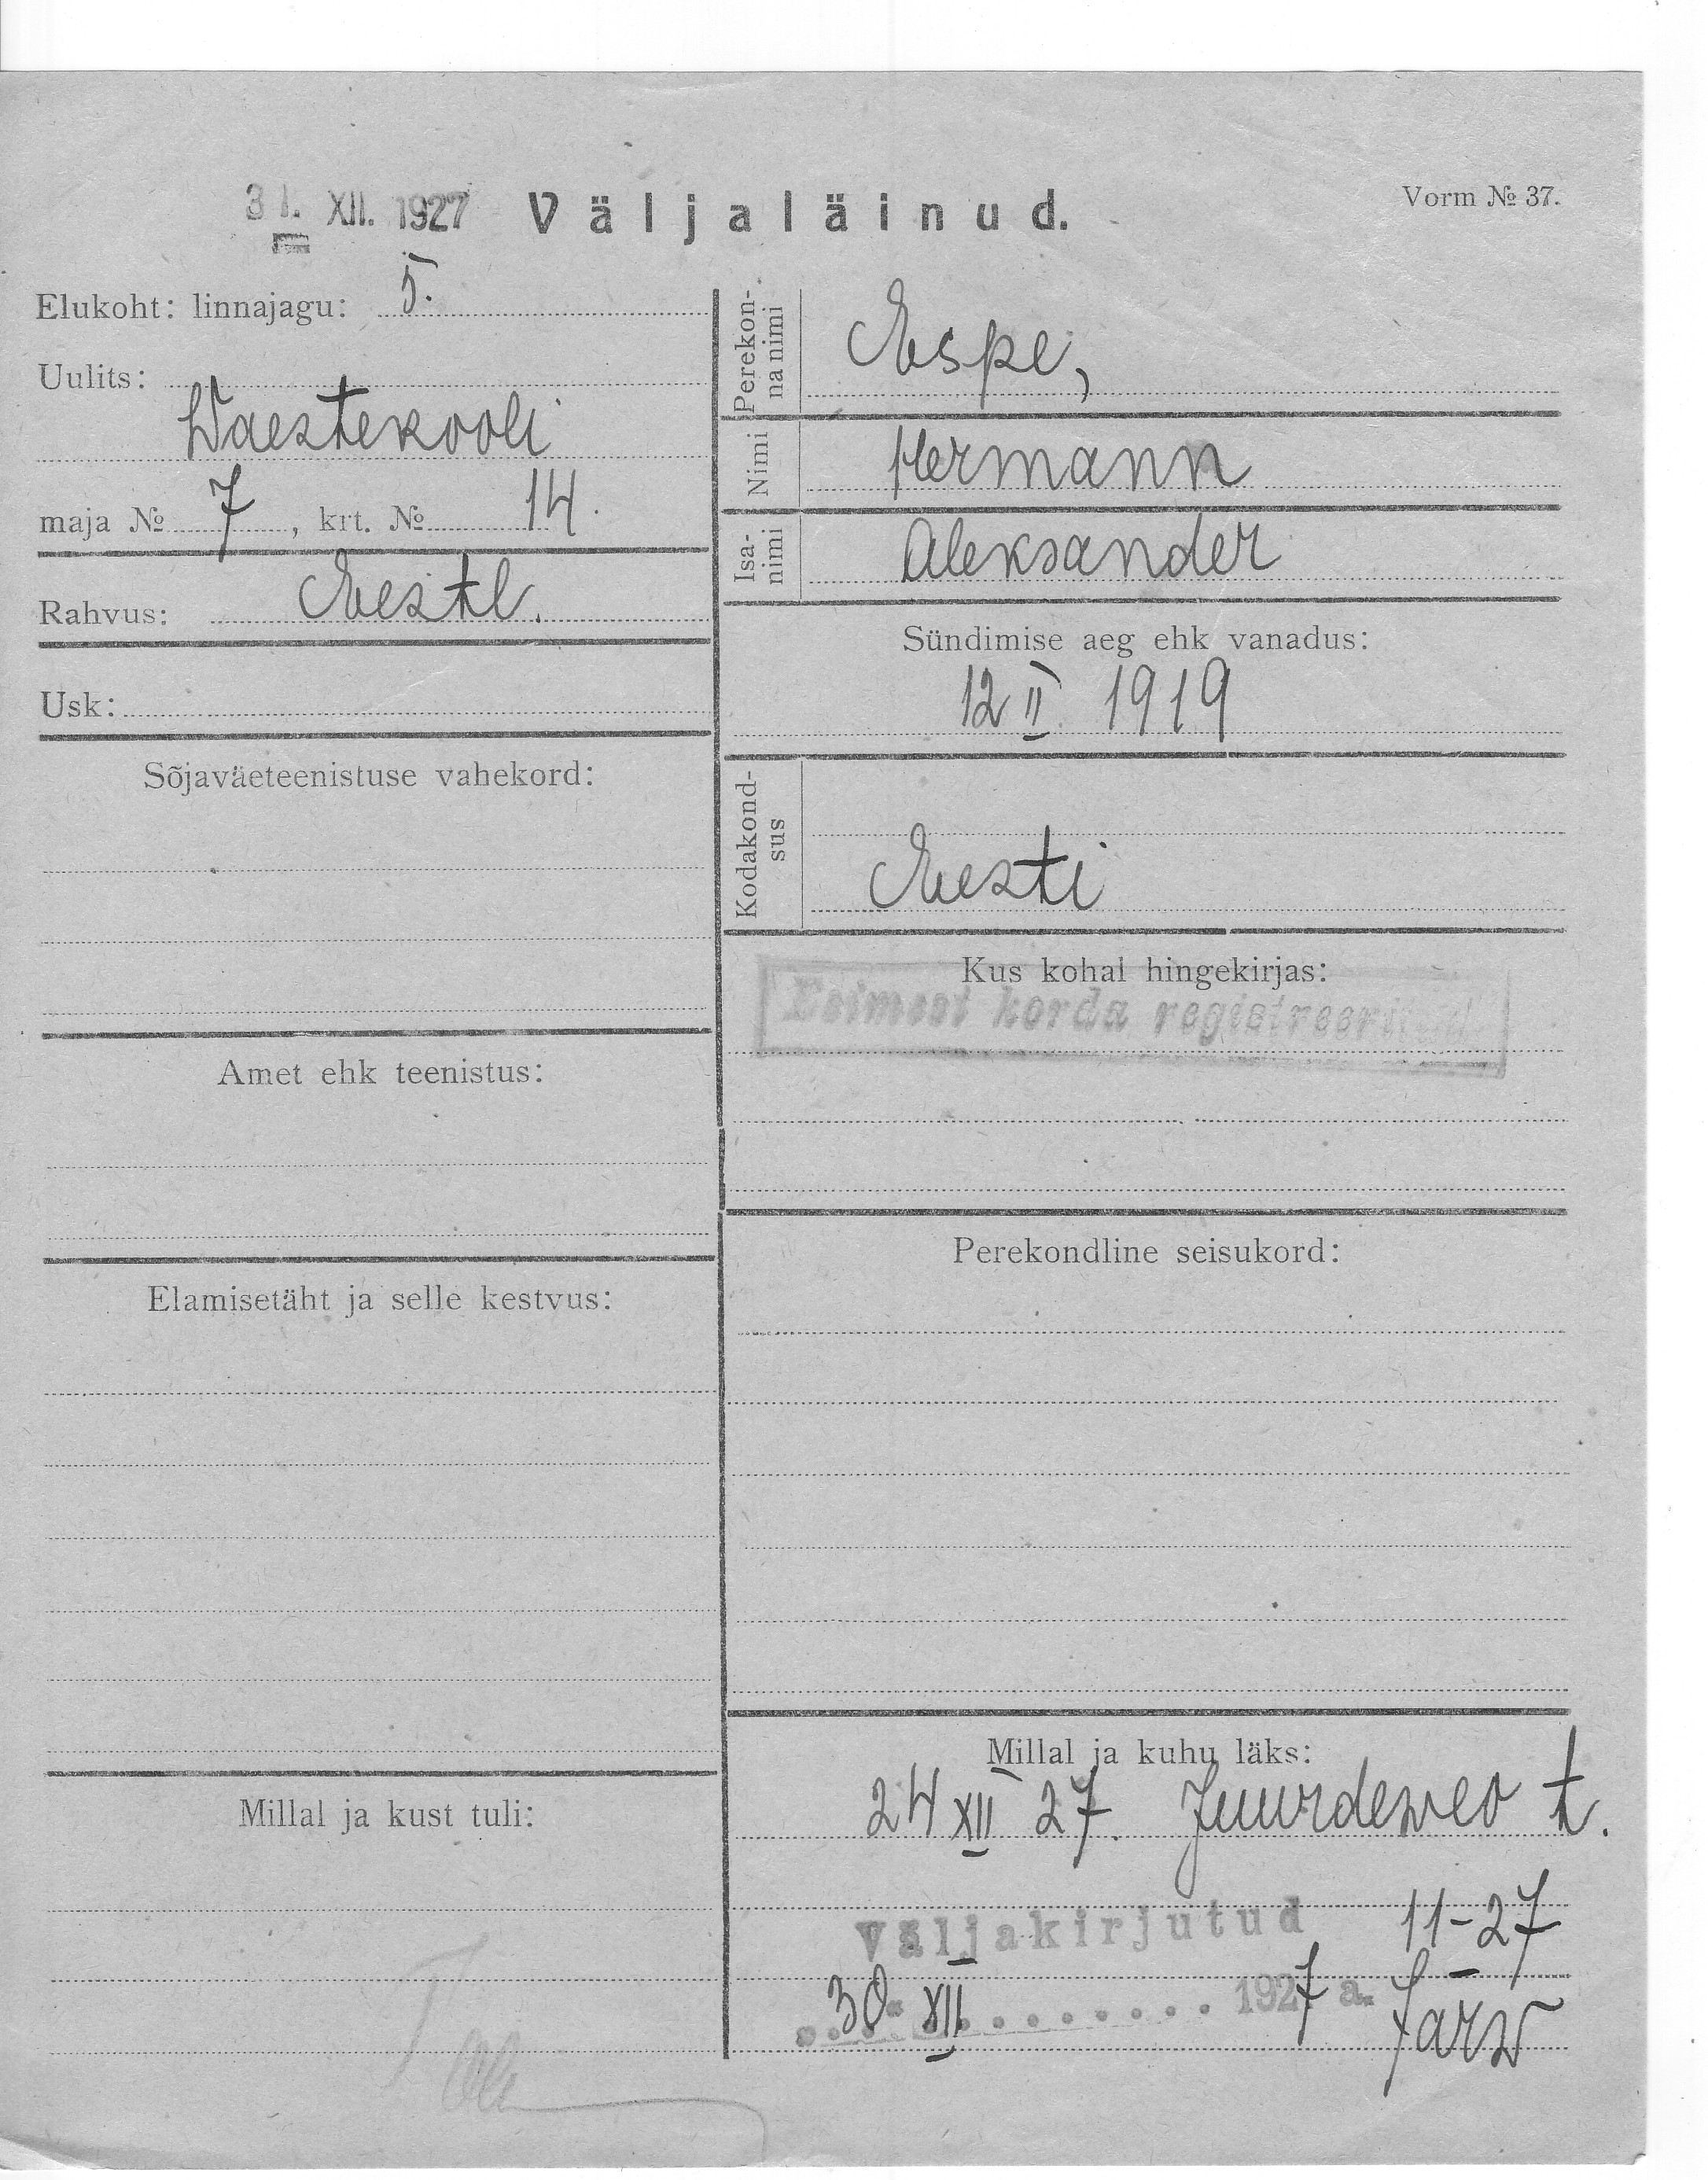 31. XII. 1927 Väljaläinud.
Vorm № 37.
Elukoht: linnajagu: 5.
Uulits:
Waestekooli
maja № 7, krt. № 14.
Rahvus: Eestl.
Usk:
Sõjaväeteenistuse vahekord:
Amet ehk teenistus:
Elamisetäht ja selle kestvus:
Millal ja kust tuli:
Perekon-
na nimi
Espe,
Nimi Hermann
Isa-
nimi
Aleksander
Sündimise aeg ehk vanadus:
12 II 1919
Kodakond-
sus
Eesti
Kus kohal hingekirjas:
Esimest korda registreeritud
Perekondline seisukord:
Millal ja kuhu läks:
24 XII 27. Juurdeveo t.
Väljakirjutud 11-27
30 XII 1927 a.